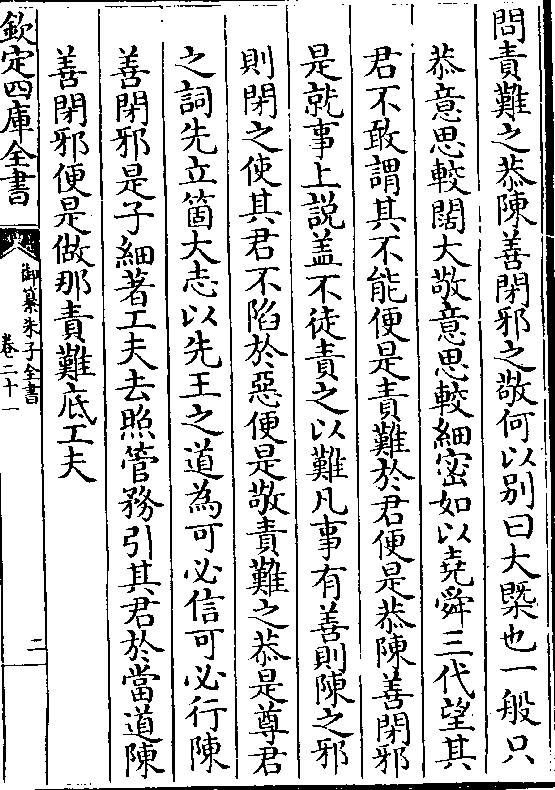 問責難之恭陳善閉邪之敬何以别曰大槩也一般只
恭意思較闊大敬意思較細密如以堯舜三代望其
君不敢謂其不能便是責難於君便是恭陳善閉邪
是就事上說盖不徒責之以難凡事有善則陳之邪
則閉之使其君不陷於惡便是敬責難之恭是尊君
之詞先立箇大志以先王之道為可必信可必行陳
善閉邪是子細著工夫去照管務引其君於當道陳
善閉邪便是做那責難底工夫
欽定四庫全書
御纂朱子全書
卷二十一
二